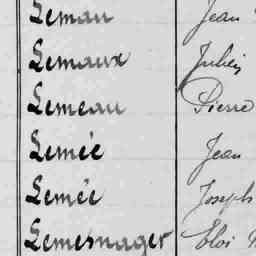 Leman Jean
Lemaux Julien
Lemeau Pierre
Lemée Jean
Lemée Joseph
Lemesnager Eloi